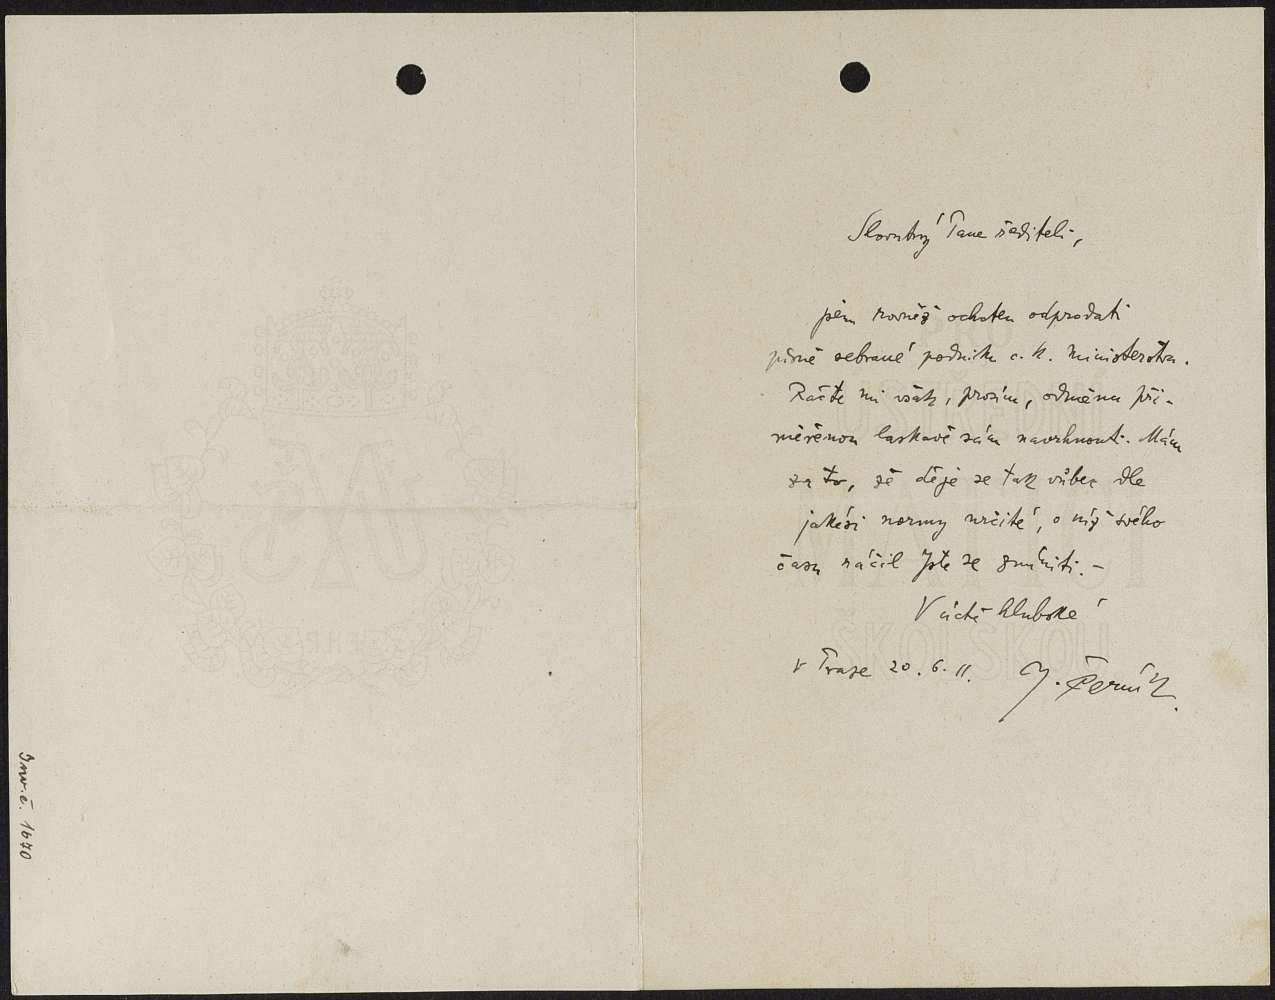 Inv. č. 1670
Slovutný Pane řediteli,
jsem rovněž ochoten odprodati
písně sebrané podniku c. k. ministerstva.
Račte mi však, prosím, odměnu při-
měřenou laskavě sám navrhnouti. Mám
za to, že děje se tak vůbec dle
jakési normy určité, o níž svého
času ráčil jste se zmíniti. –
V úctě hluboké
V Praze 20. 6. 11. J. Černík.